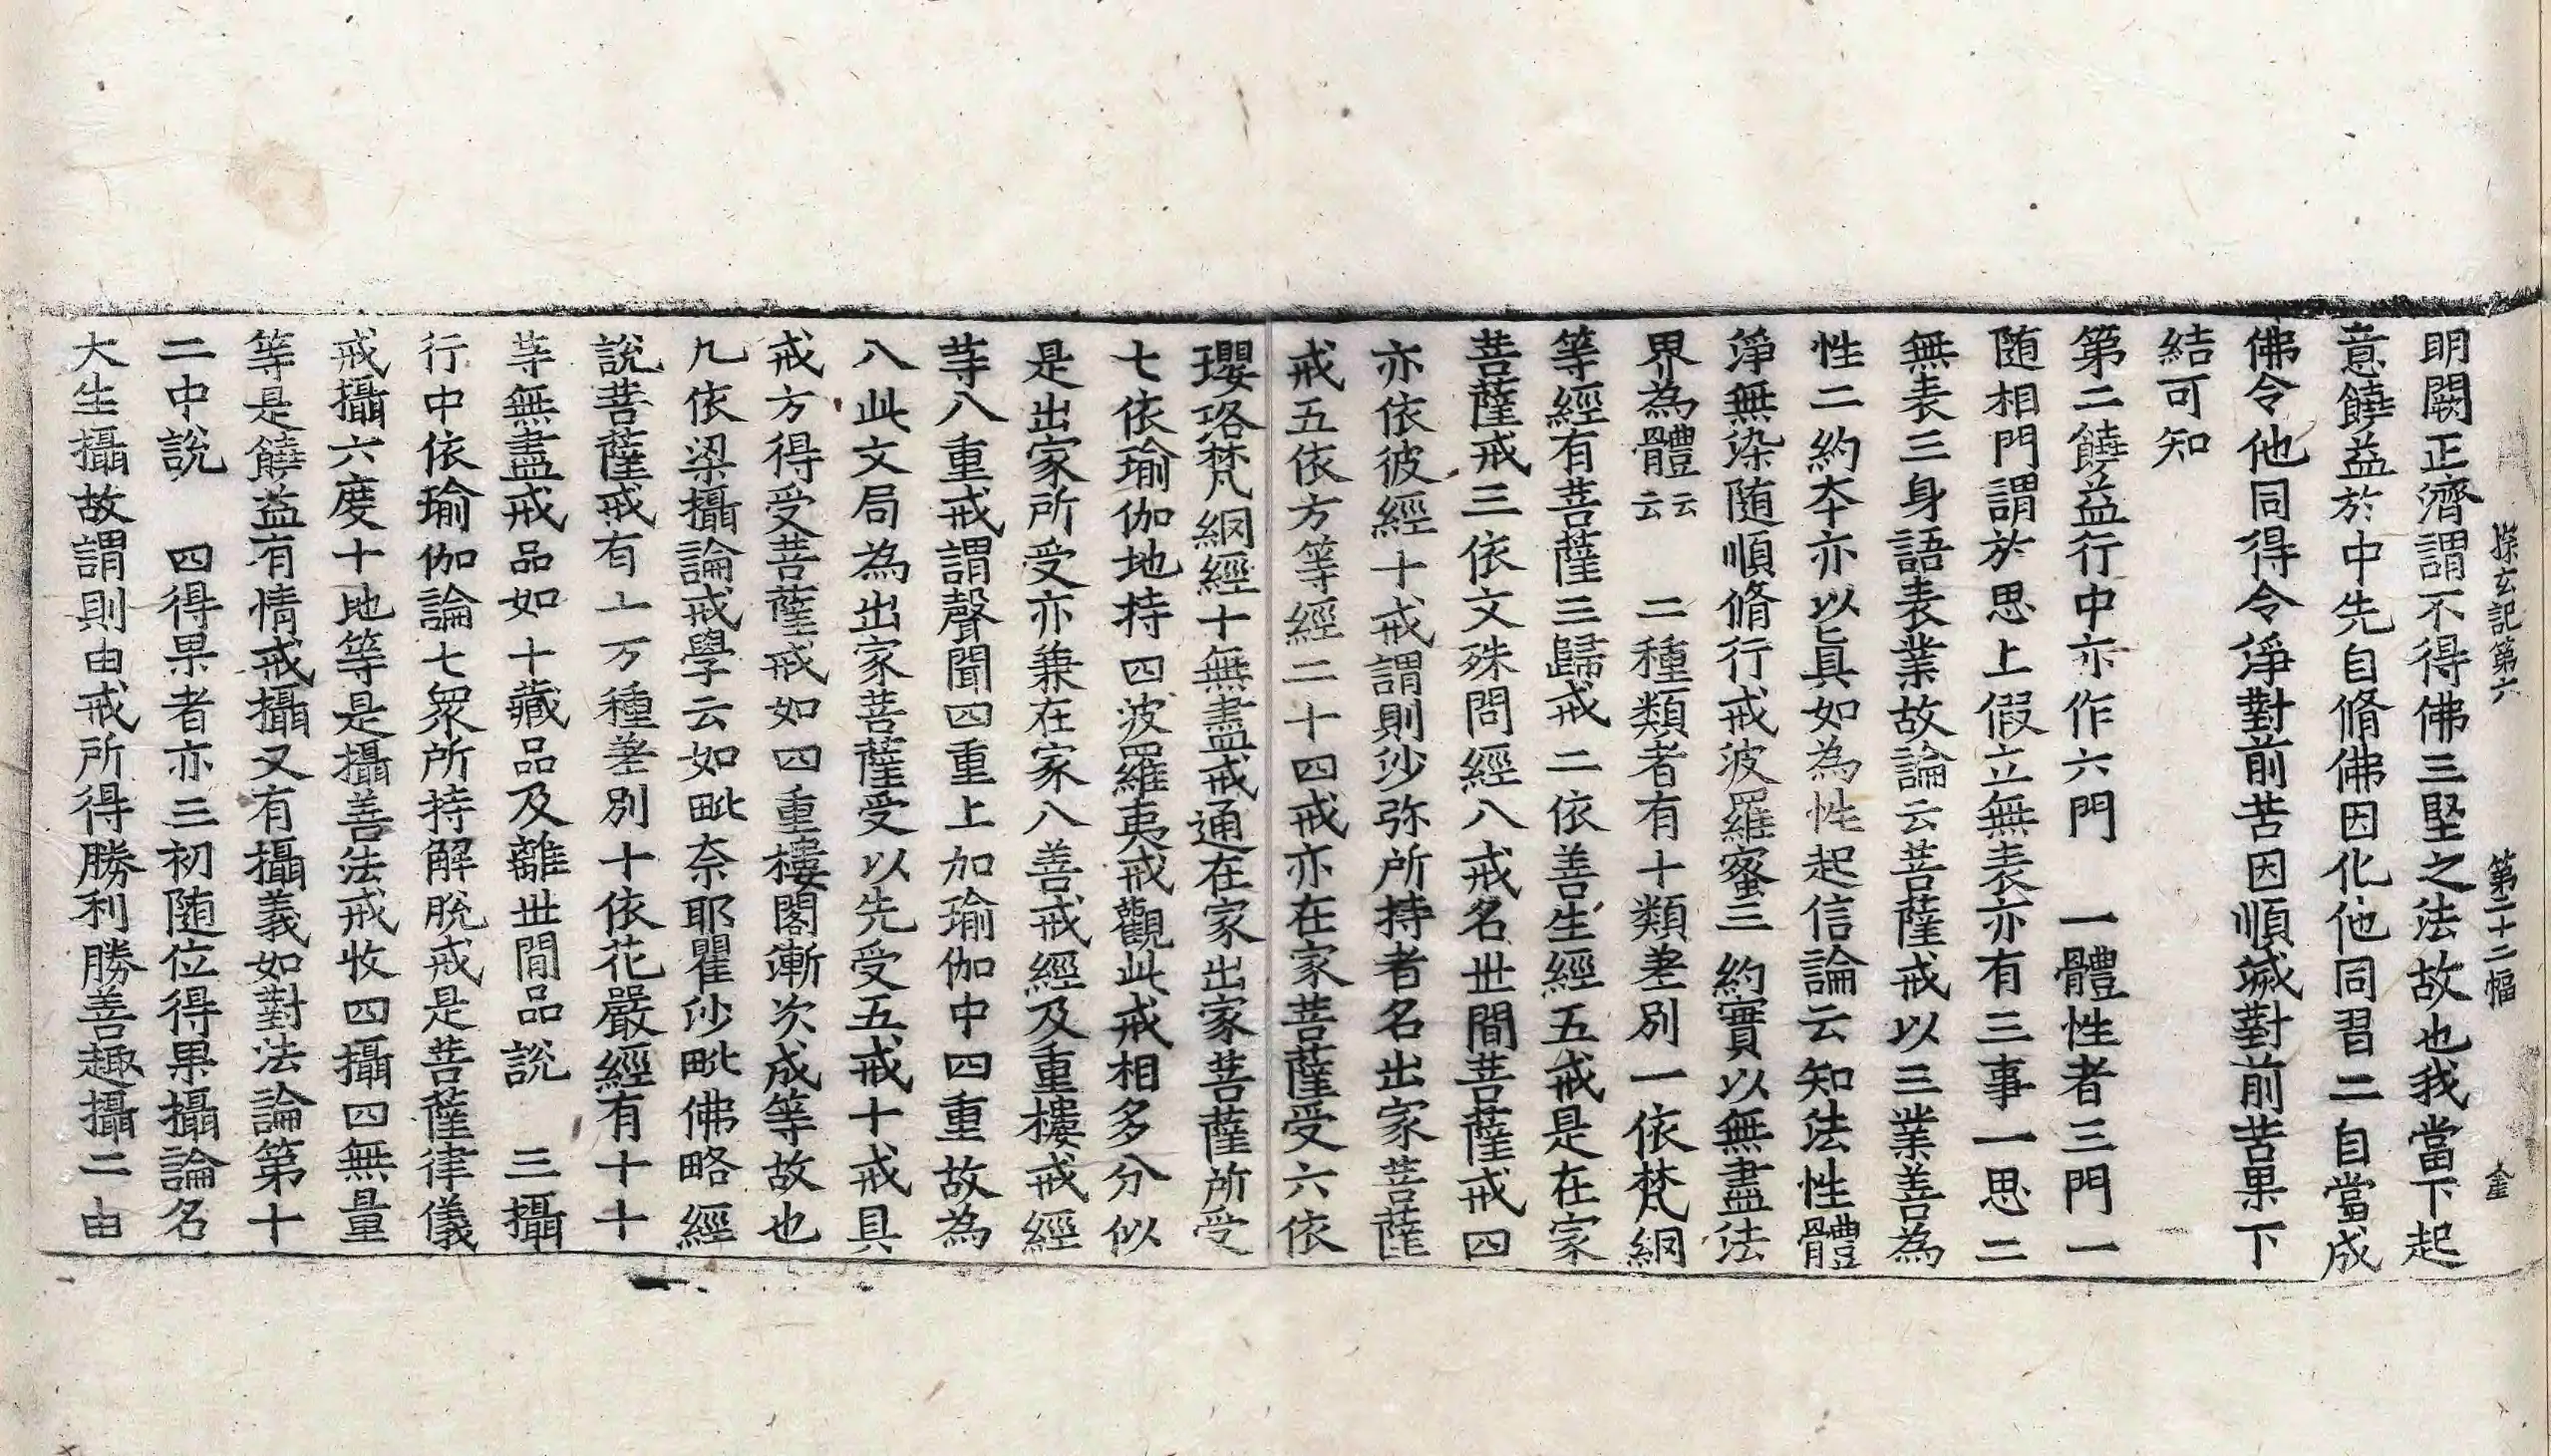 探玄記第六 第二十二幅 𨤲
明闕正濟謂不得佛三堅之法故也我當下起
意饒益於中先自脩佛因化他同習二自當成
佛令他同得令淨對前苦因順滅對前苦果下
結可知
第二饒益行中亦作六門 一體性者三門一
随相門謂於思上假立無表亦有三事一思二
無表三身語表業故論云菩薩戒以三業善為
性二約本亦以真如為性起信論云知法性體
淨無染随順脩行戒波羅蜜三約實以無盡法
界為體云云 二種類者有十類差別一依梵網
等經有菩薩三歸戒二依善生經五戒是在家
菩薩戒三依文殊問經八戒名世間菩薩戒四
亦依彼經十戒謂則沙弥所持者名出家菩薩
戒五依方等經二十四戒亦在家菩薩受六依
瓔珞梵網經十無盡戒通在家出家菩薩所受
七依瑜伽地持四波羅夷戒觀此戒相多分似
是出家所受亦兼在家八善戒經及重樓戒經
等八重戒謂聲聞四重上加瑜伽中四重故為
八此文局為出家菩薩受以先受五戒十戒具
戒方得受菩薩戒如四重樓閣漸次成等故也
九依梁攝論戒學云如毗奈耶瞿沙毗佛略經
說菩薩戒有十万種差別十依花嚴經有十十
等無盡戒品如十藏品及離世間品說 三攝
行中依瑜伽論七衆所持解脫戒是菩薩律儀
戒攝六度十地等是攝善法戒收四攝四無量
等是饒益有情戒攝又有攝義如對法論第十
二中說 四得果者亦三初随位得果攝論名
大生攝故謂則由戒所得勝利勝善趣攝二由